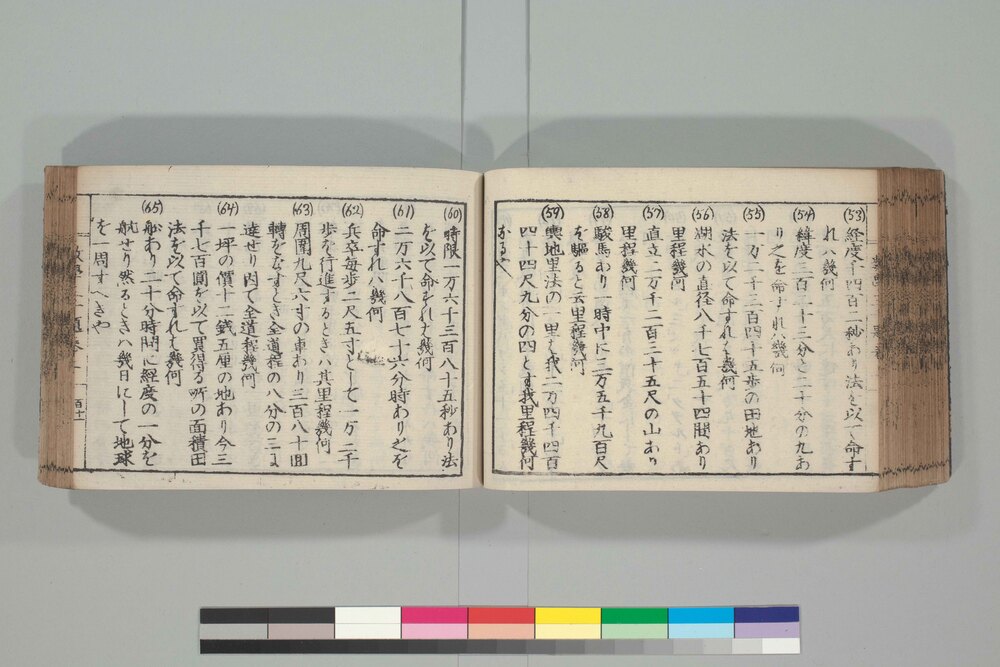 (53) 経度千四百二秒あり法を以て命す
れハ幾何
(54) 緯度三百二十三分と二十分の九あ
り之を命すれハ幾何
(55) 一万二千三百四十五歩の田地あり
法を以て命すれは幾何
(56) 湖水の直径八千七百五十四間あり
里程幾何
(57) 直立二万千二百三十五尺の山あり
里程幾何
(58) 駿馬あり一時中に二万五千九百尺
を駆ると云里程幾何
(59) 輿地里法の一里は我二万四千四百
四十四尺九分の四とす我里程幾何
なるや
(60) 時限一万六千三百八十五秒あり法
を以て命すれは幾何
(61) 二万六千八百七十六分時あり之を
命すれハ幾何
(62) 兵卒毎歩二尺五寸として一万二千
歩を行進するときハ其里程幾何
(63) 周囲九尺六寸の車あり三百八十回
轉をなすとき全道程の八分の三に
達せり因て全道程幾何
(64) 一坪の價十二銭五厘の地あり今三
千七百圓を以て買得る所の面積田
法を以て命すれは幾何
(65) 船あり二十分時間に経度の一分を
航せり然るときハ幾日にして地球
を一周すへきや